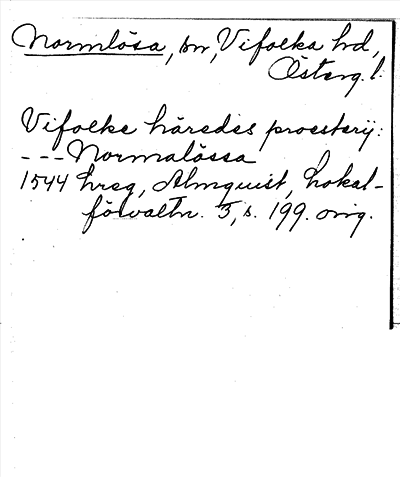 Normlösa, sn, Vifolka hd,
Österg. l.
Vifolke häredes proesterij:
--- Normalössa
1544 hreg, Almquist, Lokal-
förvaltn. 3, s. 199. orig.